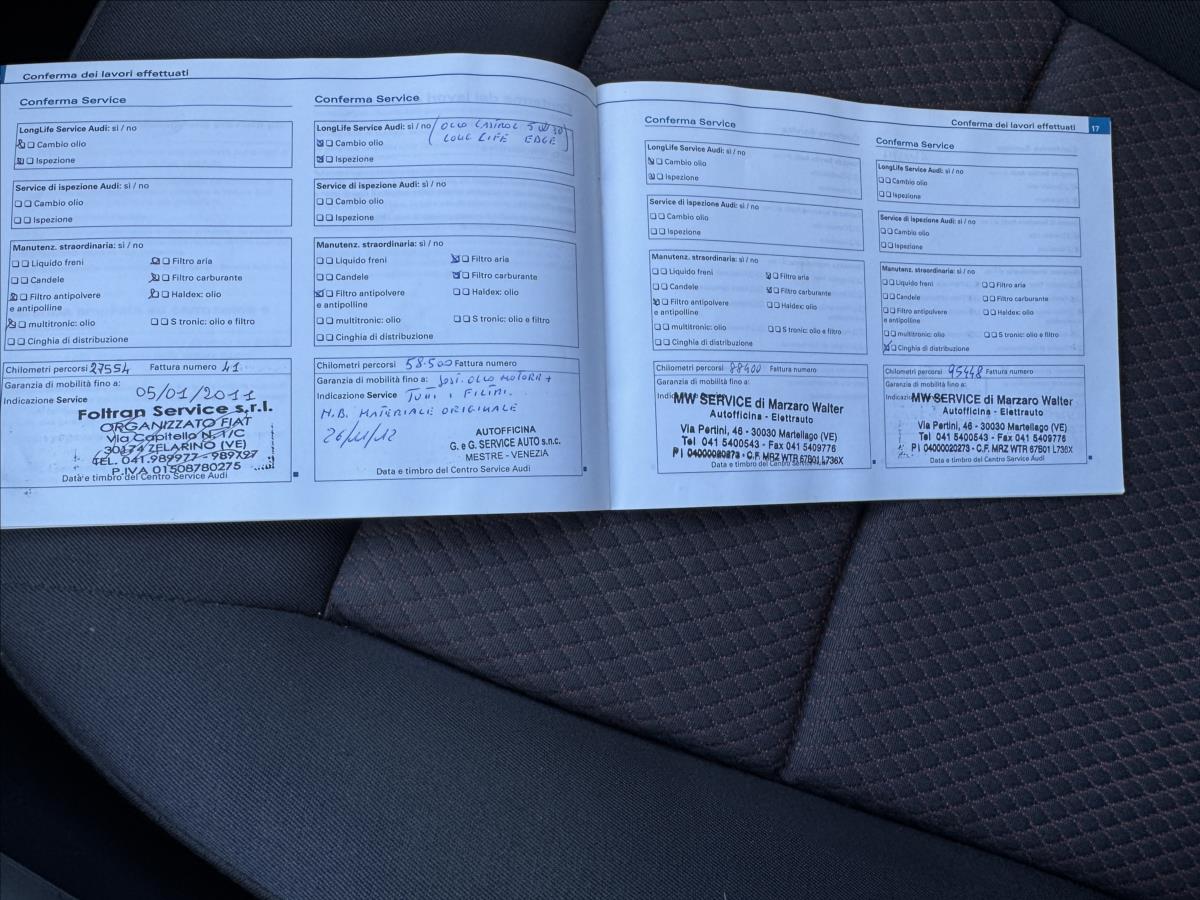 Conferma dei lavori effettuati
Conferma Service
LongLife Service Audi: sì / no
Cambio olio
Ispezione
Service di ispezione Audi: sì / no
Cambio olio
Ispezione
Manutenz. straordinaria: sì / no
Liquido freni
Filtro aria
Candele
Filtro carburante
Filtro antipolvere
e antipolline
Haldex: olio
multitronic: olio
S tronic: olio e filtro
Cinghia di distribuzione
Chilometri percorsi 27554 Fattura numero 41
Garanzia di mobilità fino a:
05/01/2011
Indicazione Service
Foltran Service s.r.l.
ORGANIZZATO FIAT
Via Capitello N. 1/C
30174 ZELARINO (VE)
TEL. 041.989977 - 989727
P.IVA 01508780275
Data e timbro del Centro Service Audi
Conferma Service
LongLife Service Audi: sì / no (OLIO CASTROL 5W30
Cambio olio LONG LIFE EDGE)
Ispezione
Service di ispezione Audi: sì / no
Cambio olio
Ispezione
Manutenz. straordinaria: sì / no
Liquido freni
Filtro aria
Candele
Filtro carburante
Filtro antipolvere
e antipolline
Haldex: olio
multitronic: olio
S tronic: olio e filtro
Cinghia di distribuzione
Chilometri percorsi 58.500 Fattura numero
Garanzia di mobilità fino a: SOST. OLIO MOTORE +
Indicazione Service TUTTI I FILTRI.
N.B. MATERIALE ORIGINALE
26/11/12
AUTOFFICINA
G. e G. SERVICE AUTO s.n.c.
MESTRE - VENEZIA
Data e timbro del Centro Service Audi
Conferma Service
LongLife Service Audi: sì / no
Cambio olio
Ispezione
Service di ispezione Audi: sì / no
Cambio olio
Ispezione
Manutenz. straordinaria: sì / no
Liquido freni
Filtro aria
Candele
Filtro carburante
Filtro antipolvere
e antipolline
Haldex: olio
multitronic: olio
S tronic: olio e filtro
Cinghia di distribuzione
Chilometri percorsi 88400 Fattura numero
Garanzia di mobilità fino a:
MW SERVICE di Marzaro Walter
Autofficina - Elettrauto
Via Pertini, 46 - 30030 Martellago (VE)
Tel 041 5400543 - Fax 041 5409776
P I 04000020273 - C.F. MRZ WTR 67B01 L736X
Data e timbro del Centro Service Audi
Conferma dei lavori effettuati 17
Conferma Service
LongLife Service Audi: sì / no
Cambio olio
Ispezione
Service di ispezione Audi: sì / no
Cambio olio
Ispezione
Manutenz. straordinaria: sì / no
Liquido freni
Filtro aria
Candele
Filtro carburante
Filtro antipolvere
e antipolline
Haldex: olio
multitronic: olio
S tronic: olio e filtro
Cinghia di distribuzione
Chilometri percorsi 95448 Fattura numero
Garanzia di mobilità fino a:
MW SERVICE di Marzaro Walter
Autofficina - Elettrauto
Via Pertini, 46 - 30030 Martellago (VE)
Tel 041 5400543 - Fax 041 5409776
P I 04000020273 - C.F. MRZ WTR 67B01 L736X
Data e timbro del Centro Service Audi